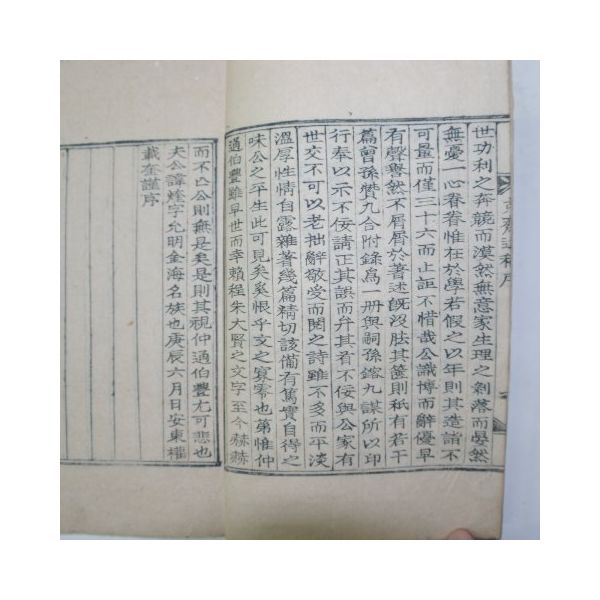 世功利之奔競而漠然無意家生理之剝落而晏然
無憂一心眷眷惟在於學若假之以年則其造詣不
可量而僅三十六而止詎不惜哉公識博而辭優早
有聲譽然不屑屑於著述旣沒胠其篋則秖有若干
篇曾孫贊九合附錄爲一冊與嗣孫鎔九謀所以印
行奉以示不佞請正其誤而弁其首不佞與公家有
世交不可以老拙辭敬受而閱之詩雖不多而平淡
溫厚性情自露雜著幾篇精切該備有篤實自得之
味公之平生此可見矣奚恨乎文之寡零也第惟仲
通伯豐雖早世而幸賴程朱大賢之文字至今赫赫
而不亡公則無是矣是則其視仲通伯豐尤可悲也
夫公諱煃字允明金海名族也庚辰六月日安東權
載奎謹序